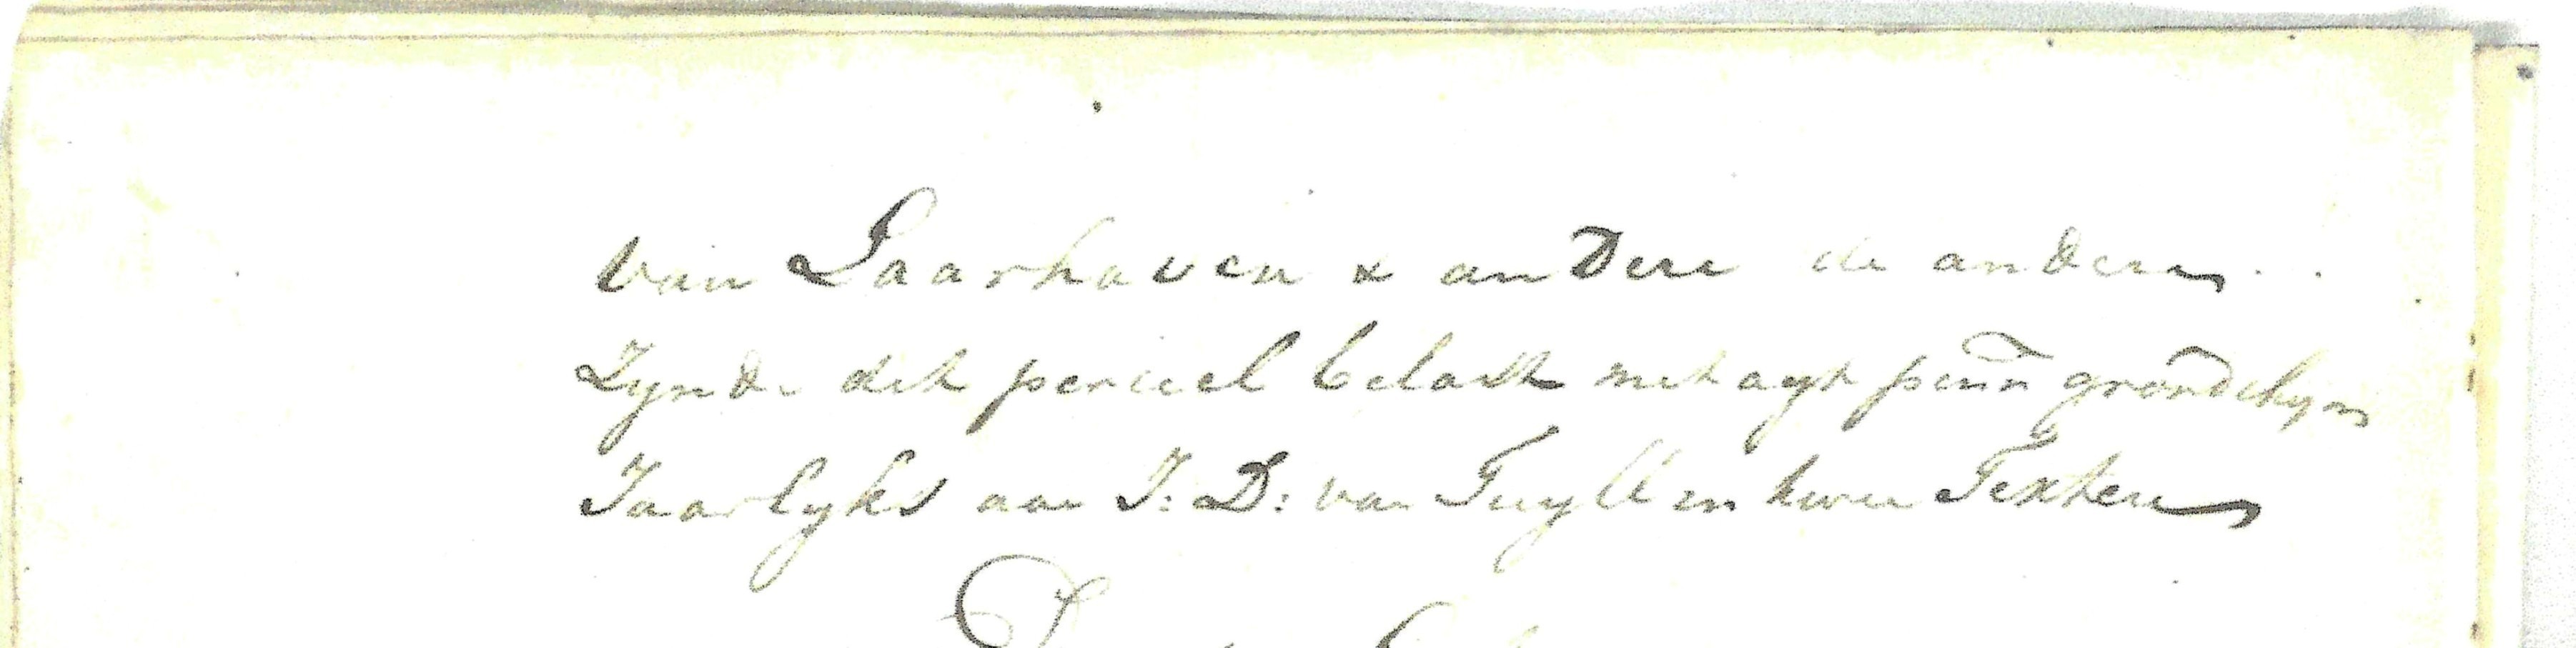 van Laarhoven & andere de andere
Zynde dit perceel belast met agt penn grondchyns
Jaarlyks aan J: D: van Tuyll en